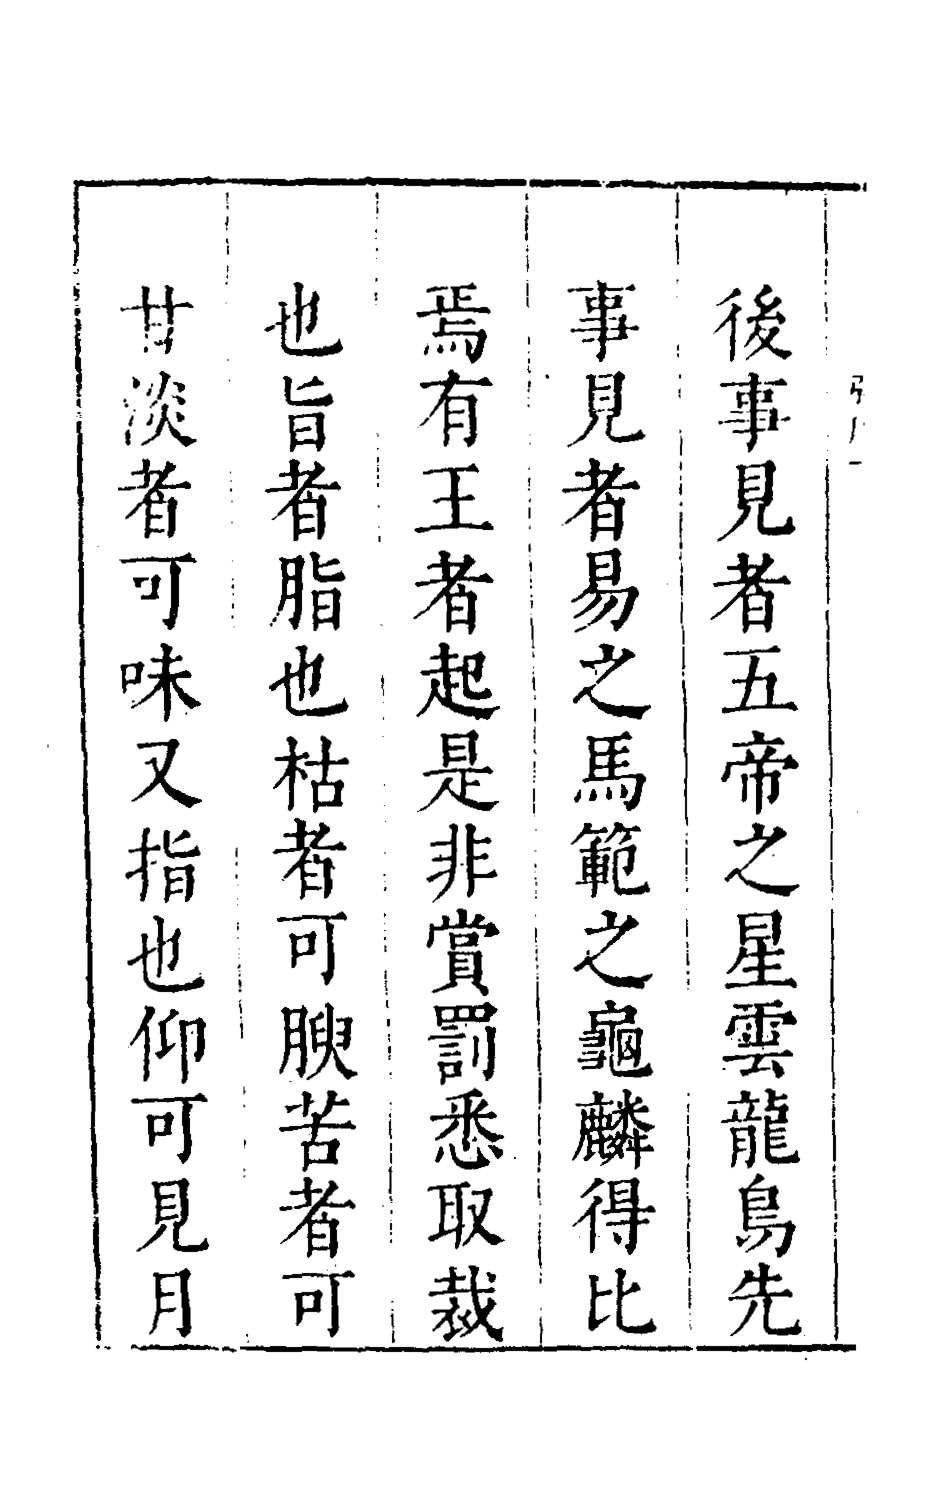 後事見者五帝之星雲龍鳥先
事見者易之馬範之龜麟得比
焉有王者起是非賞罰悉取裁
也旨者脂也枯者可腴苦者可
甘淡者可味又指也仰可見月